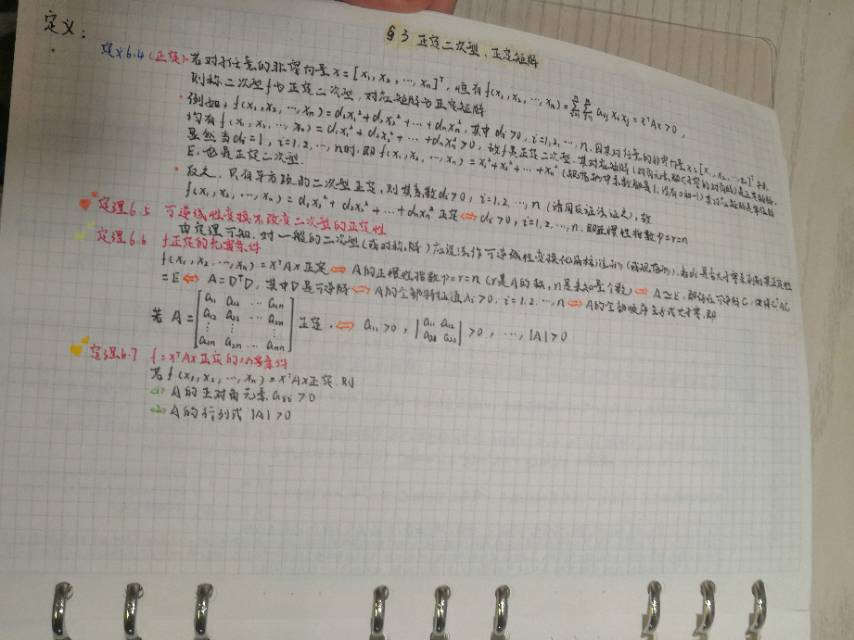 定义：
§3 正定二次型、正定矩阵
定义6.4(正定)：若对于任意的非零向量 x=[x₁,x₂,…,xₙ]ᵀ，恒有 f(x₁,x₂,…,xₙ)=∑∑aᵢⱼxᵢxⱼ=xᵀAx>0，
则称二次型f为正定二次型，对应矩阵为正定矩阵
·例如，f(x₁,x₂,…,xₙ)=d₁x₁²+d₂x₂²+…+dₙxₙ²，其中 dᵢ>0，i=1,2,…,n. 因其对任意的非零向量 x=[x₁,x₂,…,xₙ]ᵀ≠0，
均有 f(x₁,x₂,…,xₙ)=d₁x₁²+d₂x₂²+…+dₙxₙ²>0，故f是正定二次型，其对应矩阵
显然当dᵢ=1，i=1,2,…,n时，即 f(x₁,x₂,…,xₙ)=x₁²+x₂²+…+xₙ²
E，也是正定二次型.
·反之，只有平方项的二次型正定，则其系数dᵢ>0，i=1,2,…,n (请用反证法证之)，故
f(x₁,x₂,…,xₙ)=d₁x₁²+d₂x₂²+…+dₙxₙ²正定⇔dᵢ>0，i=1,2,…,n. 即正惯性指数p=r=n
定理6.5 可逆线性变换不改变二次型的正定性
由定理可知，对一般的二次型(或对称阵)应设法作可逆线性变换化为标准形(或规范形)，
定理6.6 f正定的充要条件
f(x₁,x₂…,xₙ)=xᵀAx正定⇔A的正惯性指数p=r=n (r是A的秩，n是未知量个数)⇔A≃E，即存在可逆阵C，使得CᵀAC
=E⇔A=DᵀD，其中D是可逆阵⇔A的全部特征值λᵢ>0，i=1,2,…,n⇔A的全部顺序主子式大于零，即
若 A=[a₁₁ a₁₂ … a₁ₙ
a₂₁ a₂₂ … a₂ₙ
⋮ ⋮ ⋮
aₙ₁ aₙ₂ … aₙₙ] 正定.⇔ a₁₁>0，|a₁₁ a₁₂
a₂₁ a₂₂|>0，…，|A|>0
定理6.7 f=xᵀAx正定的必要条件
若f(x₁,x₂,…,xₙ)=xᵀAx正定，则
(1) A的主对角元素aᵢᵢ>0
(2) A的行列式|A|>0